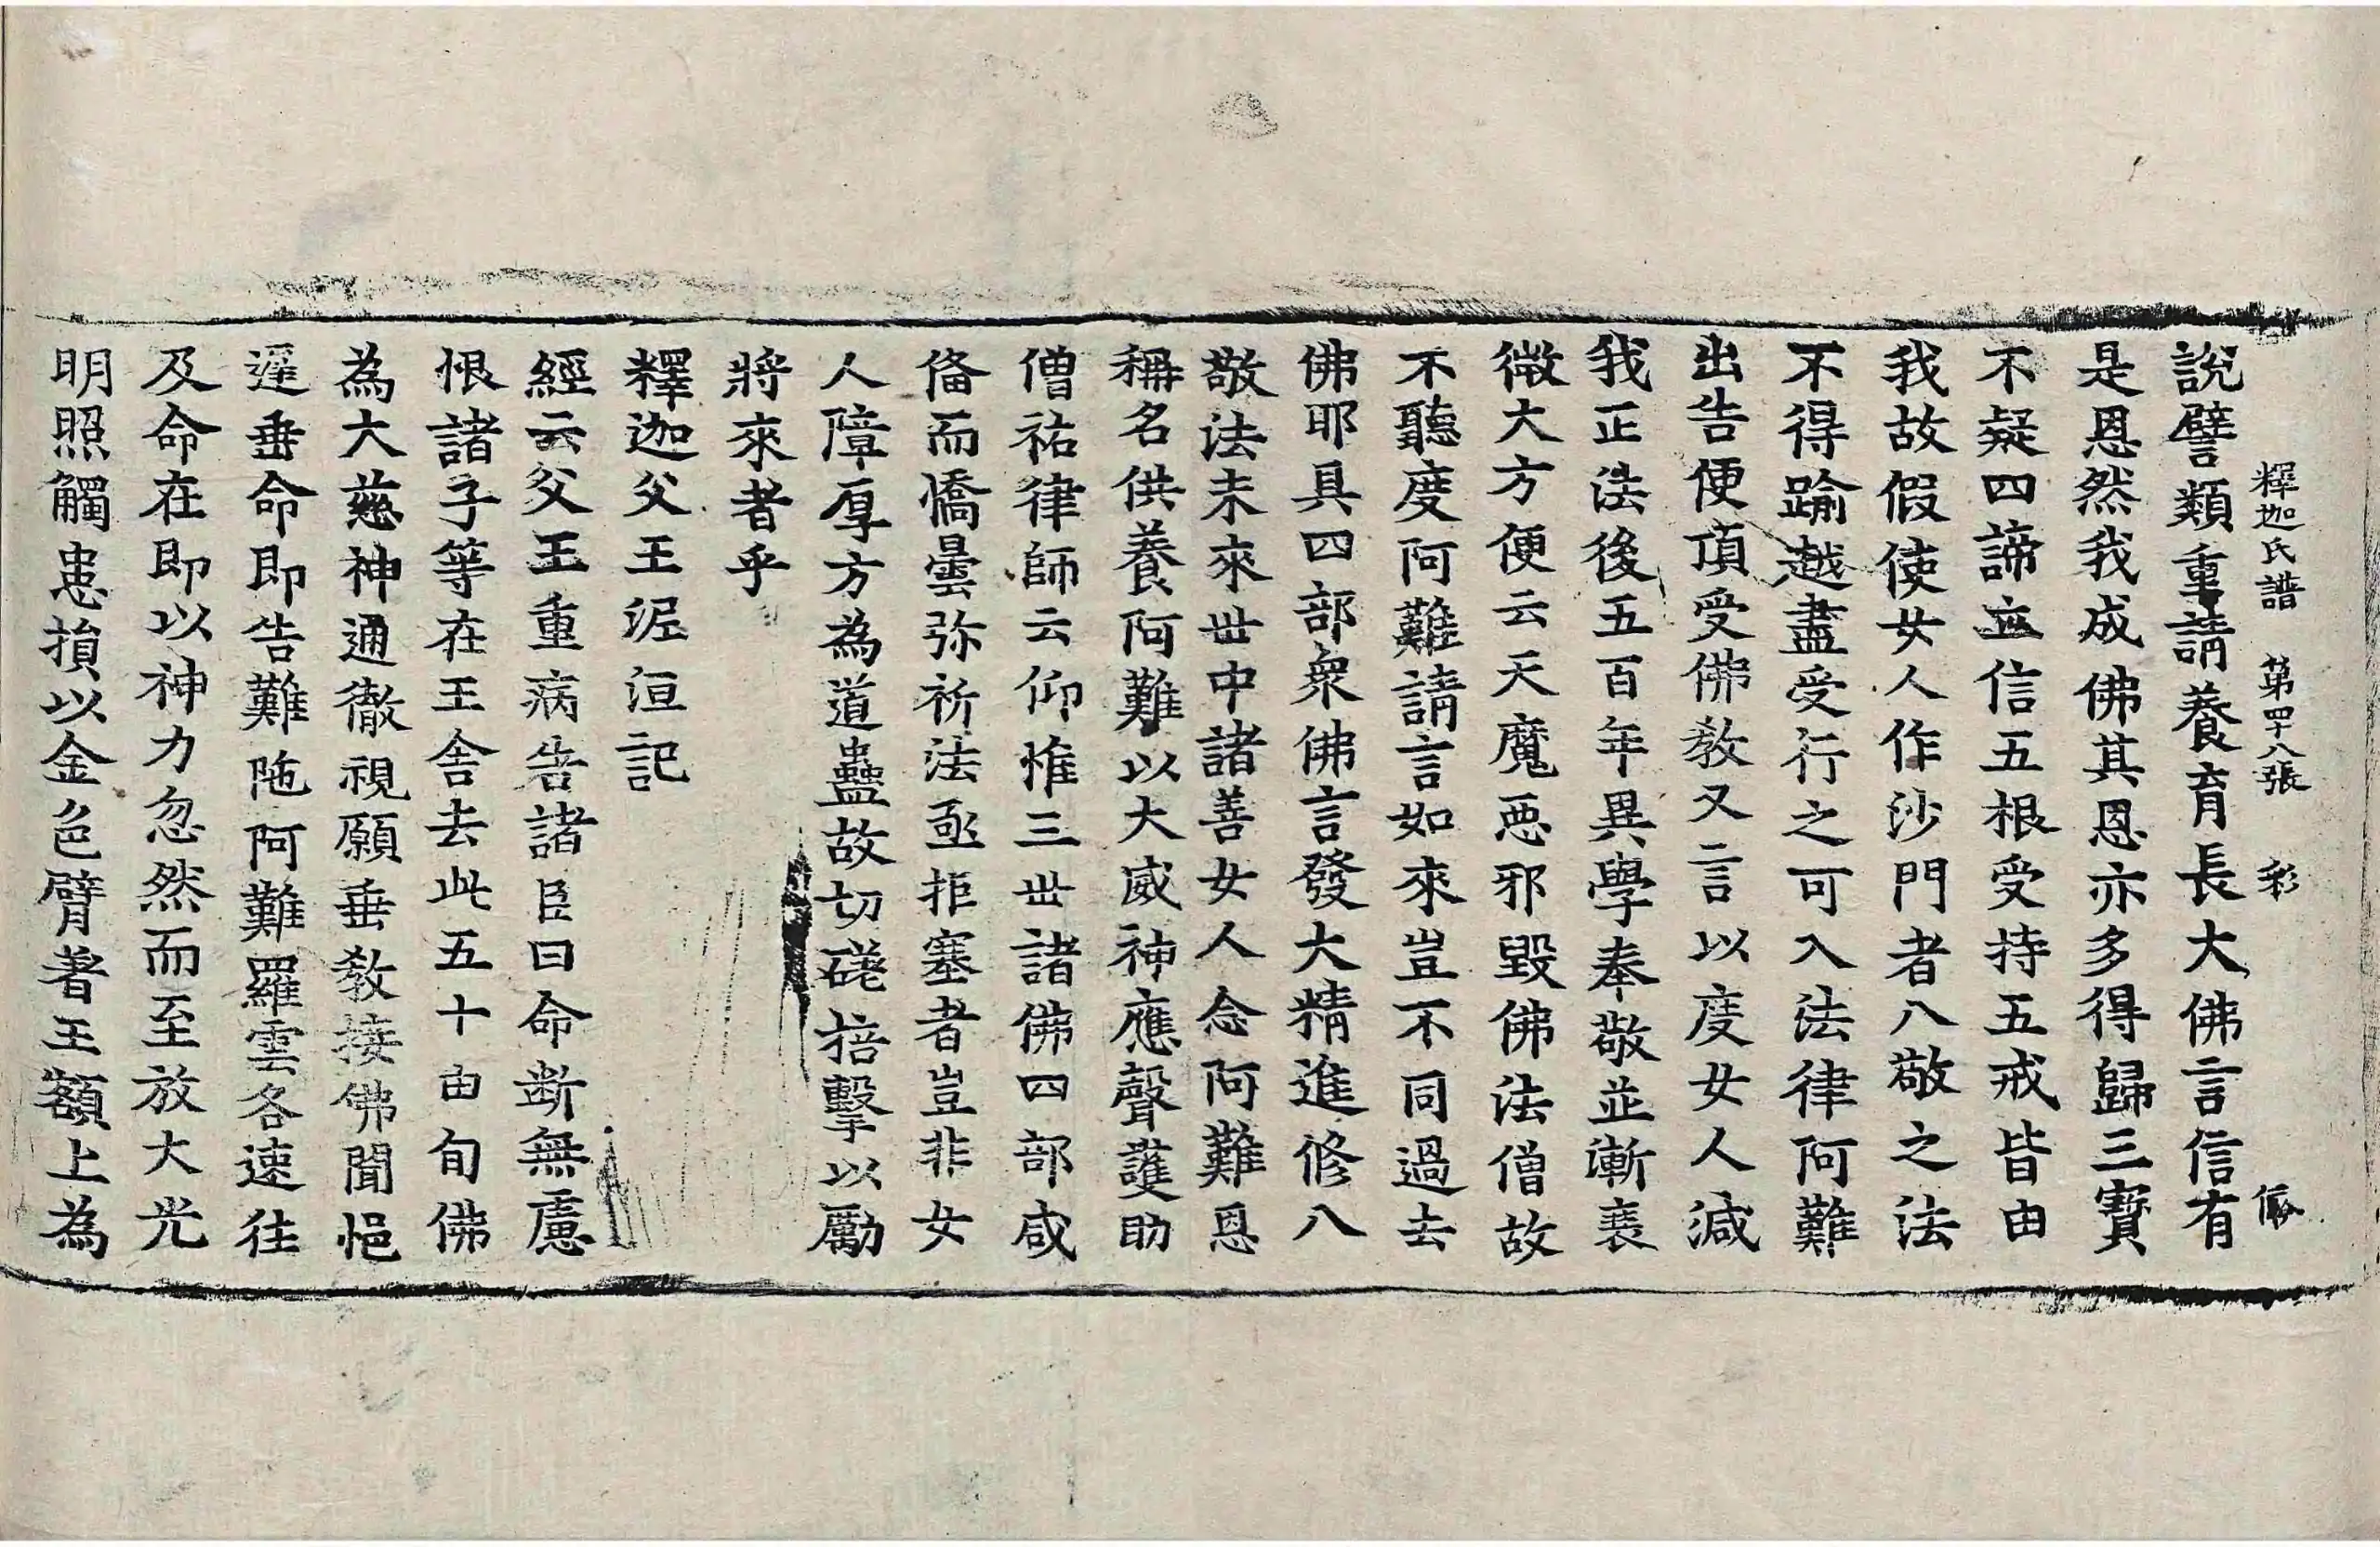 釋迦氏譜 第四十八張 彩
說譬類重請養育長大佛言信有
是恩然我成佛其恩亦多得歸三寶
不疑四諦立信五根受持五戒皆由
我故假使女人作沙門者八敬之法
不得踰越盡受行之可入法律阿難
出告便頂受佛教又言以度女人減
我正法後五百年異學奉敬並漸衰
微大方便云天魔惡邪毀佛法僧故
不聽度阿難請言如來豈不同過去
佛耶具四部衆佛言發大精進修八
敬法未來世中諸善女人念阿難恩
稱名供養阿難以大威神應聲護助
僧祐律師云仰惟三世諸佛四部咸
俻而憍曇弥祈法亟拒塞者豈非女
人障厚方為道蠱故切磋掊擊以勵
將來者乎
釋迦父王泥洹記
經云父王重病告諸臣曰命断無慮
恨諸子等在王舍去此五十由旬佛
為大慈神通徹視願垂教接佛聞悒
遲垂命即告難陁阿難羅雲各速往
及命在即以神力忽然而至放大光
明照觸患損以金色臂著王額上為